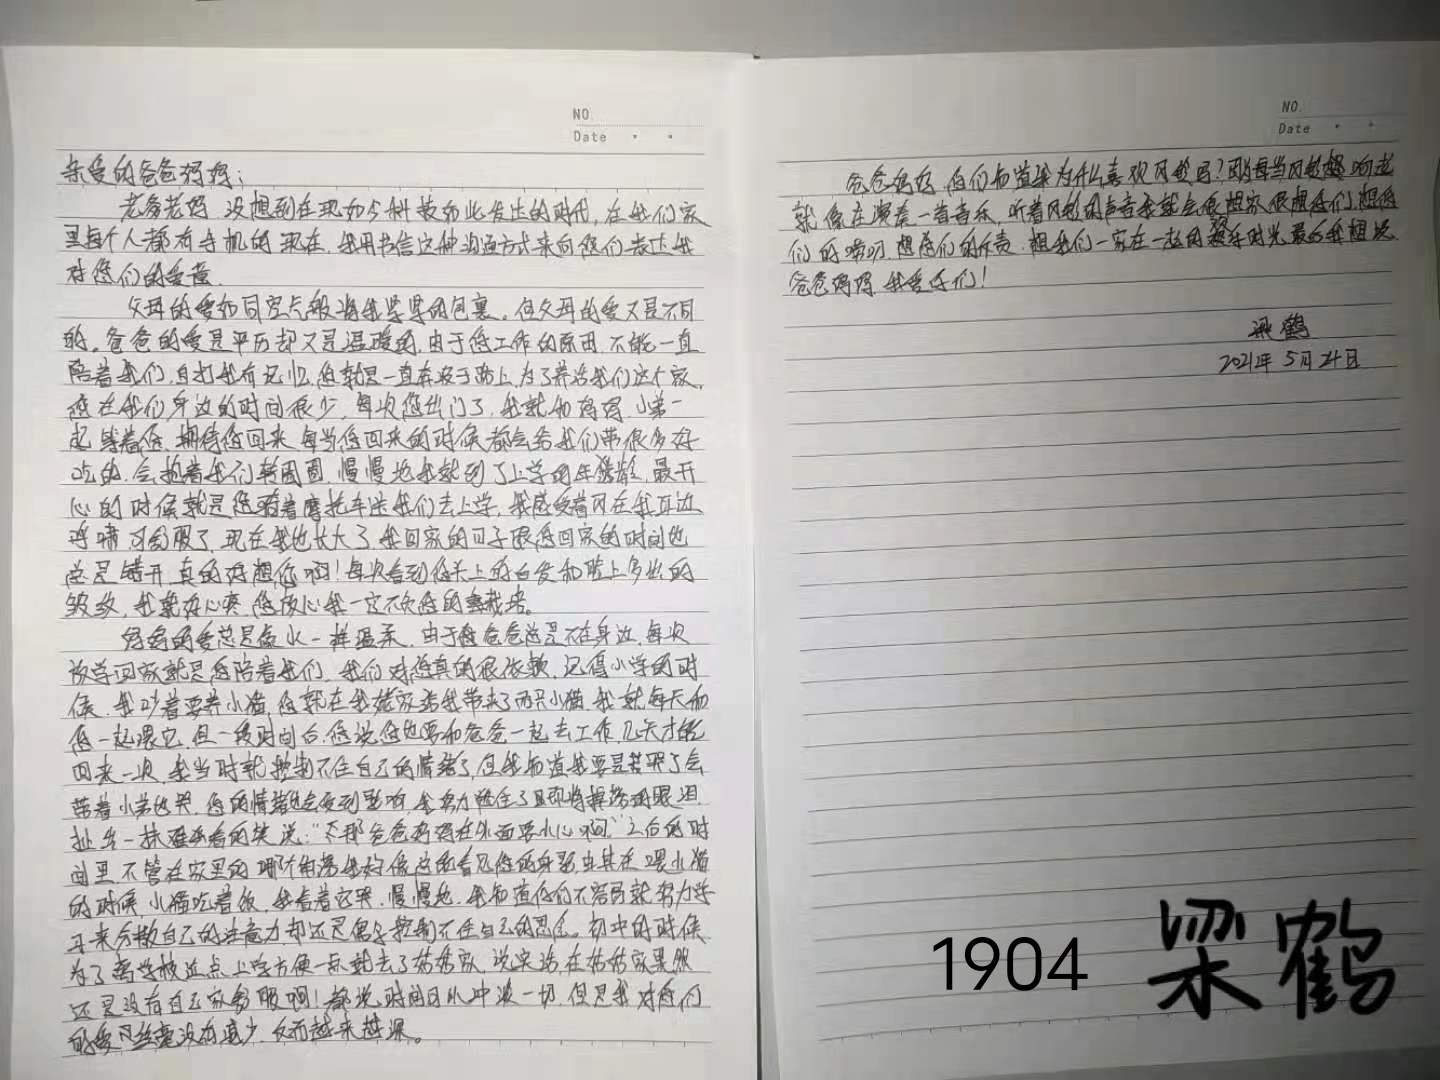 NO.
Date
亲爱的爸爸妈妈：
老爸老妈，没想到在现如今科技如此发达的时代，在我们家
里每个人都有手机的现在，我用书信这种沟通方式来向您们表达我
对您们的爱意.
父母的爱如同空气般将我紧紧的包裹。但父母的爱又是不同
的。爸爸的爱是平历却又是温暖的，由于您工作的原因，不能一直
陪着我们，自打我有记忆，您就是一直奔波于路上，为了养活我们这个家，
您在我们身边的时间很少，每次您出门了，我就和妈妈、小弟一
起等着您，期待您回来，每当您回来的时候都会给我们带很多好
吃的，会抱着我们转圈圈，慢慢地我就到了上学的年龄，最开
心的时候就是您骑着摩托车送我们去上学，我感受着风在我耳边
呼啸，可舒服了，现在我也长大了，我回家的日子跟您回家的时间也
总是错开，真的好想您啊！每次看到您头上的白发和脸上多出的
皱纹，我就好心疼，您放心我一定不负您的栽培。
妈妈的爱总是像水一样温柔，由于爸爸总是不在身边，每次
放学回家就是您陪着我们，我们对您真的很依赖，记得小学的时
候，我吵着要养小猫，您就在我姥家给我带来了两只小猫，我就每天和
您一起喂它，但一段时间后，您说您也要和爸爸一起去工作，几天才能
回来一次，我当时就控制不住自己的情绪了，但我知道我要是哭了会
带着小弟也哭，您的情绪也会受到影响，我努力憋住了即将掉落的眼泪，
扯出一抹难看的笑说：“那爸爸妈妈在外面要小心啊。”之后的时
间里，不管在家里的哪个角落我好像总能看见您的身影，尤其在喂小猫
的时候，小猫吃着饭，我看着它哭，慢慢地，我知道你们不容易就努力学
习来分散自己的注意力，却还是偶尔控制不住自己的思念。初中的时候
为了离学校近点，上学方便一点就去了姑姑家，说实话，在姑姑家果然
还是没有自己家舒服啊！都说时间可以冲淡一切，但是我对你们
的爱只丝毫没有减少，反而越来越深。
NO.
Date
爸爸妈妈，你们知道我为什么喜欢风铃吗？因为每当风铃响起
就像在演奏一首音乐，听着风铃的声音我就会很想家很想你们，想你
们的唠叨，想你们的斥责，想我们一家在一起的时光，最后我想说
爸爸妈妈，我爱你们！
梁鹤
2021年5月24日
1904 梁鹤